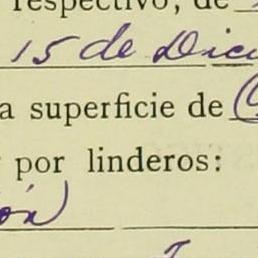 respectivo, de
15 de Dici
a superficie de
por linderos:
ón